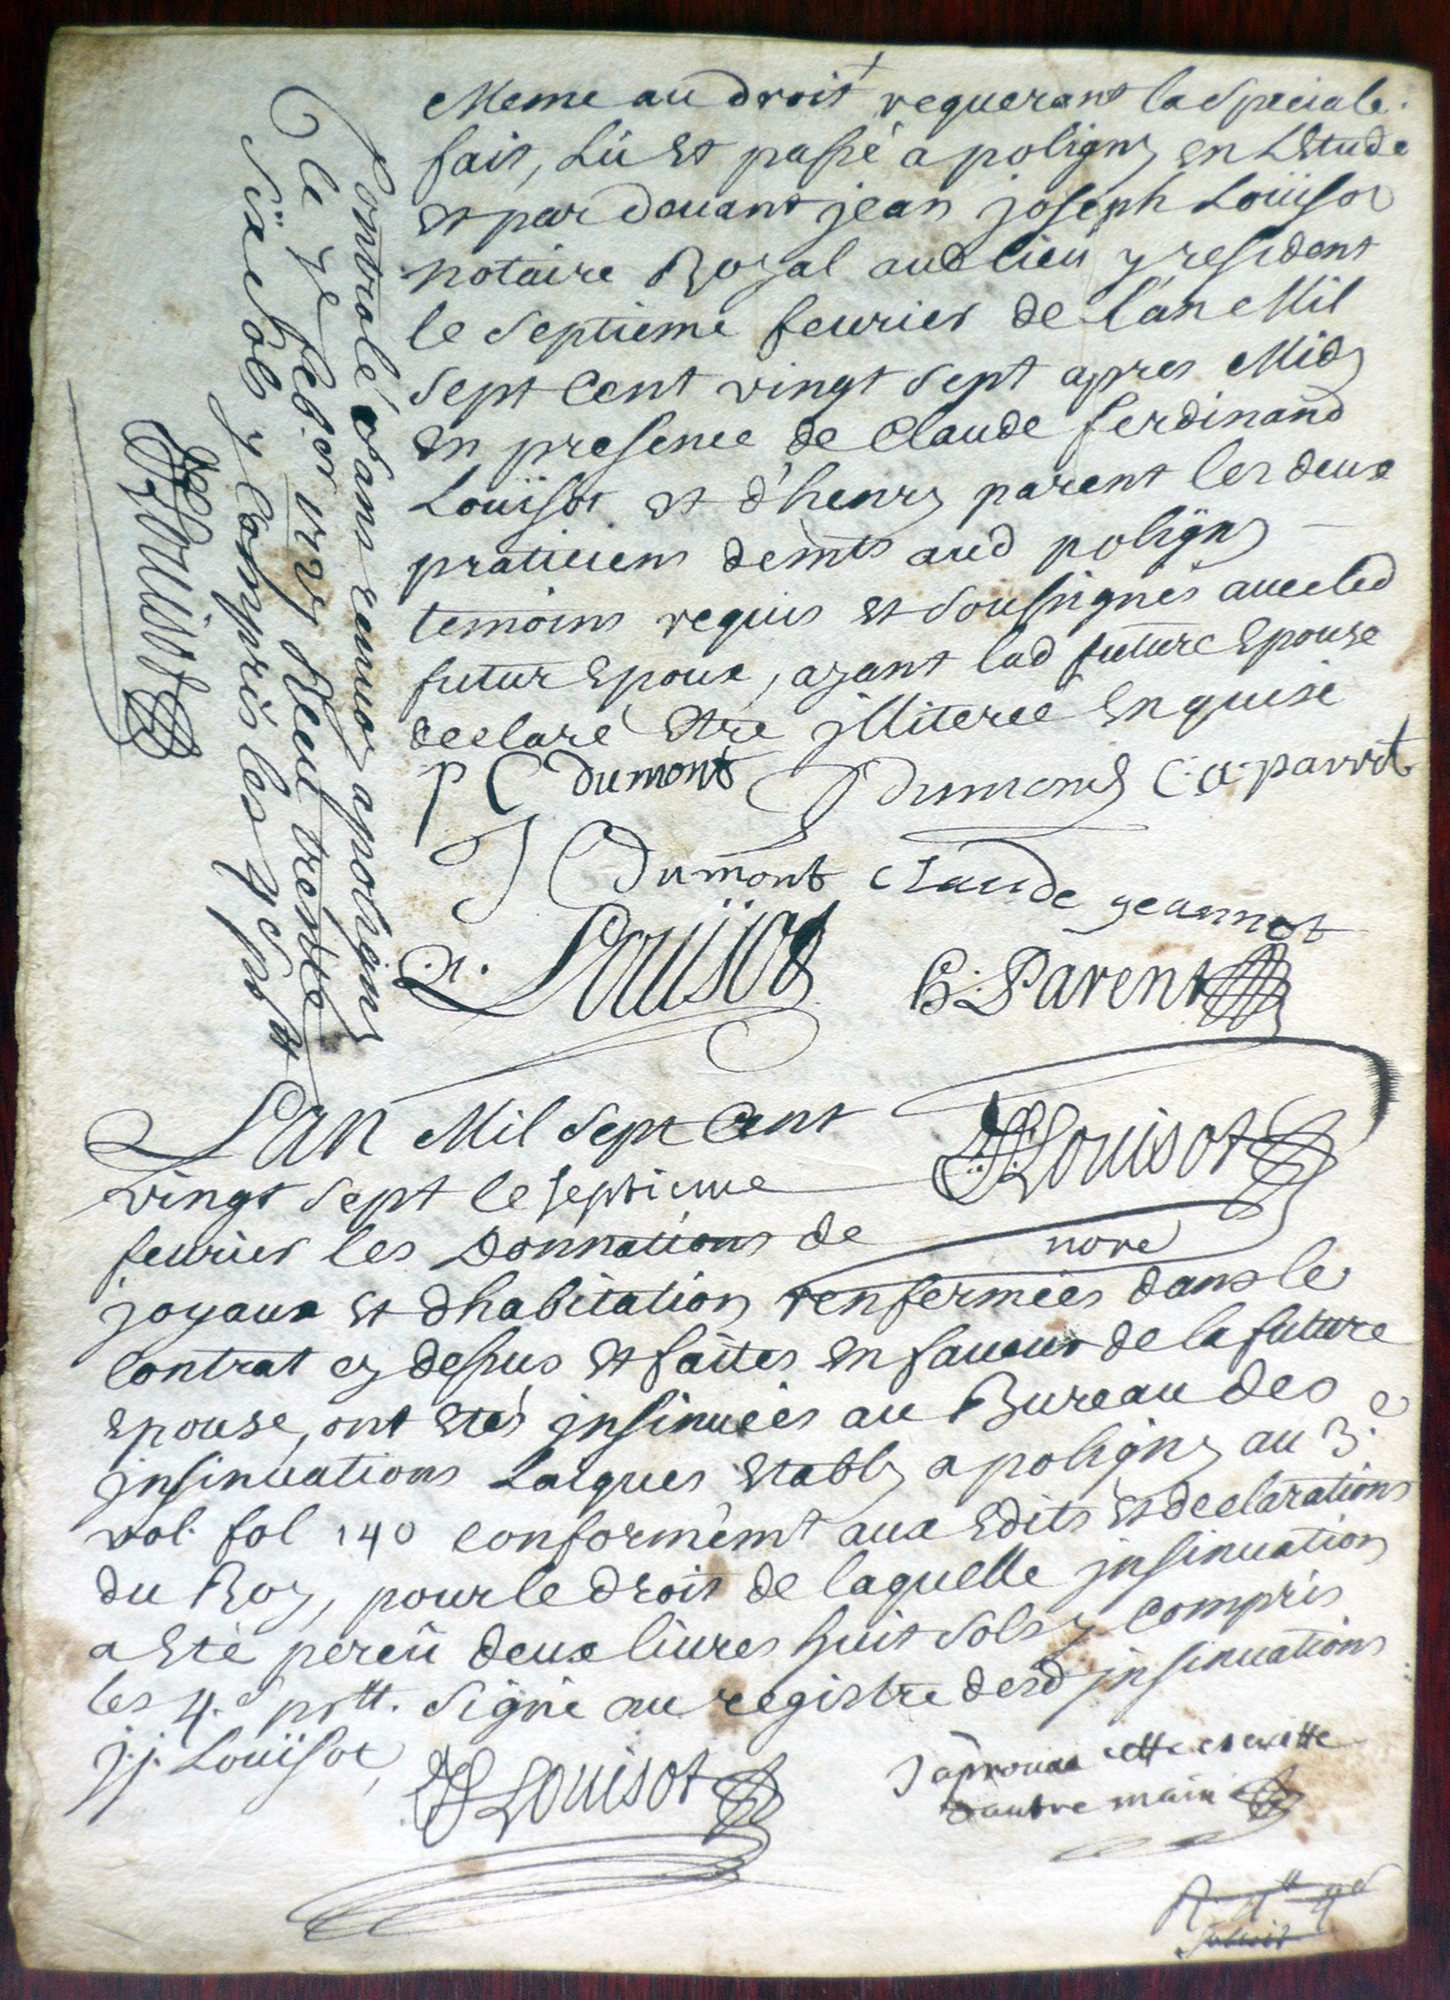 Meme au droit requerant la speciale.
fait, Lû et passé a poligny en Letude
et par deuant jean joseph Loüisot
notaire Royal aud lieu y resident
le septieme feurier de L'an Mil
sept Cent vingt sept apres Midy
en presence de Claude ferdinand
Loüisot et d'henry parent les deux
praticiens demts aud poligny
temoins requis et soussignés auec led
futur Epoux, ayant lad future Epouse
declaré etre jlliterée enquise
P C Dumont J Dumond C. a. parrot
J C Dumont Claude jeannot
Loüisot h. Parent
Controlé sans renuoy a poligny
le 7e feb.er 1727 Receu trente
six sols y Compris les 4 s pr tt
JJLouisot
L'an Mil sept Cent
vingt sept le septieme
feurier les Donnations de
JJLouisot
nore
joyaux et dhabitation renfermées dans le
Contrat cy dessus et faites en faueur de la future
epouse, ont etés jnsinuées au Bureau des
jnsinuations Laiques etably a poligny au 3.e
vol. fol 140 conformèmt aux edits et declarations
du Roy, pour le droit de laquelle jnsinuation
a eté perçû deux liures huit sols y compris
les 4.s pr tt. signé au registre desd jnsinuations
j.j. Loüisot,
JJLouisot
J'aprouue cette escritte
d'autre main